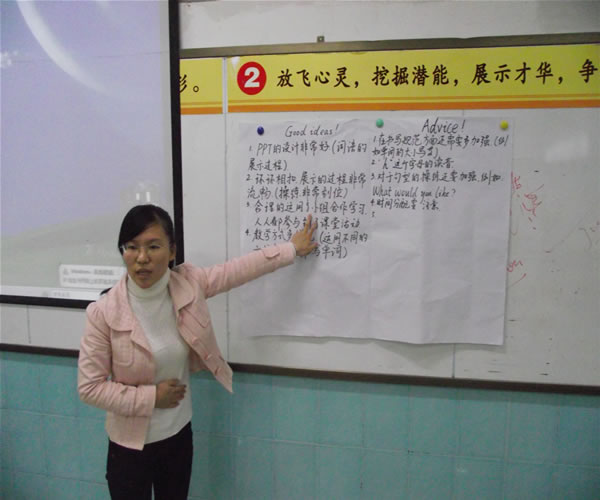 彩。
2 放飞心灵，挖掘潜能，展示才华，争
Good ideas!
1. PPT的设计非常好(词语的
展示过程)
2. 环环相扣，展示的过程非常
流畅(操练非常到位)
3. 合理的运用了小组合作学习
人人都参与 课堂活动
4. 教学方式多 (运用不同的
单词)
Advice!
1. 在书写规范方面还需要多加强(例
如单词的大小写等)
2. "h"这个字母的读音
3. 对于句型的操练还要加强，例如
What would you like?
4. 时间分配要注意